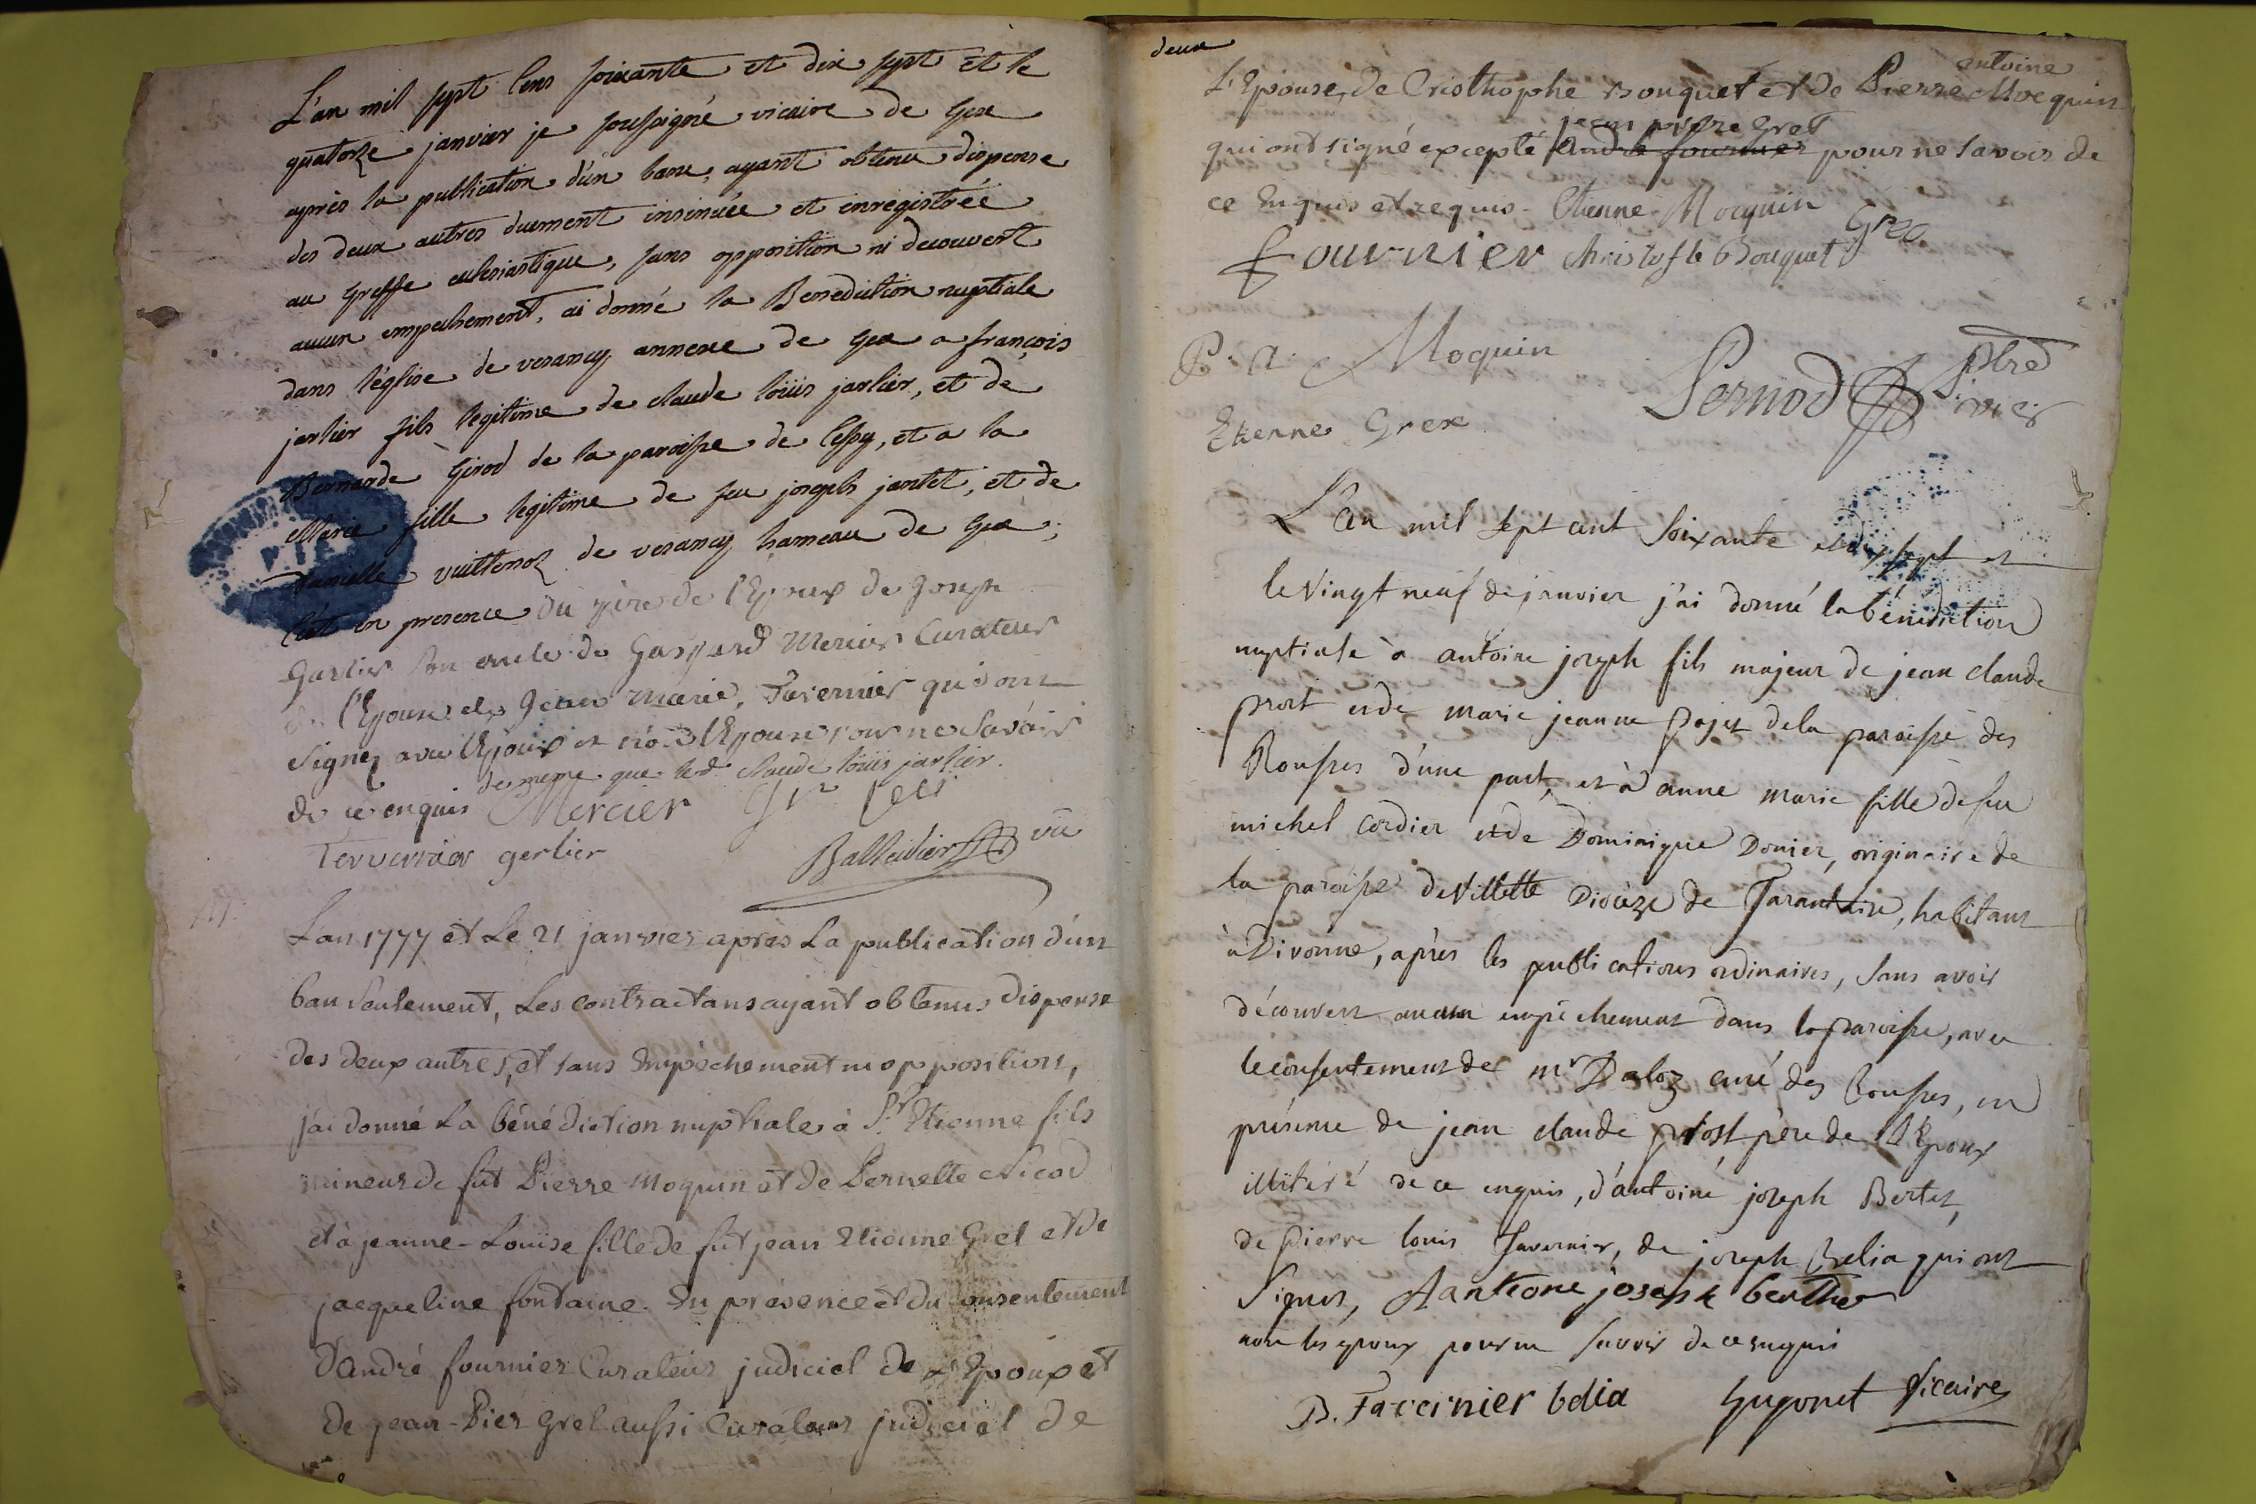 L'an mil sept cens soixante et dix sept et le
quatorze janvier je soussigné vicaire de Gex
après la publication d'un banc, ayant obtenu dispense
des deux autres duement insinuée et enregistrée
au Greffe eclesiastique, sans opposition ni decouvert
aucun empechement, ai donné la Benediction nuptiale
dans l'église de vesancy annexe de Gex a françois
jarlier fils legitime de claude loüis jarlier, et de
Bernarde Girod de la paroisse de Cessy, et a la
Marie fille legitime de feu joseph jantet, et de
vuittenoz de vesancy hameau de Gex;
en presence Du père de l'Epoux de Joseph
Garlier son oncle de Gaspard Mercier Curateur
de l'Epouse et de Jean marie Tavernier qui ont
Signez avec l'Epoux et nō l'Epouse pour ne Savoir
de meme que led. claude loüis jarlier.
de ce enquis Mercier
gerlier
Balleidier vic
L'an 1777 et Le 21 janvier après La publication d'un
ban seulement, Les contractans ayant obtenus dispense
des deux autres, et sans Empêchement ni opposition,
j'ai donné La bénédiction nuptiale à Sr. Etienne fils
mineur de fût Pierre Moquin et de Pernette Nicod
et à jeanne-Louise fille de fût jean Etienne Grel et de
jacqueline fontaine. En présence et du consentement
d'André fournier Curateur judiciel de L'Epoux et
de jean-Pier Grel aussi Curateur judiciel de
deux
L'Epouse, de Cristhophe Bouquet et de Pierre antoine Mocquin
qui ont signé excepté jean pierre Grel pour ne savoir de
ce Enquis et requis. Etienne Mocquin
fournier christofle Bouquet Grel
P. a. Moquin
Pernod ptre vic
Etienne Grex
L'an mil sept cent soixante et dix sept et
le Vingt neuf de janvier j'ai donné la bénédiction
nuptiale à antoine joseph fils majeur de jean claude
prost et de marie jeanne pajet de la paroisse des
Rousses d'une part, et à anne marie fille de feu
michel cordier et de Dominique Donier, originaire de
la paroisse de Villette Diocèze de Tarantaise, habitant
à Divonne, après les publications ordinaires, sans avoir
découvert aucun empêchement dans la paroisse, avec
le consentement de mr Daloz curé des Rousses, en
présence de jean claude prost père de l'Epoux
illitéré de ce enquis, d'antoine joseph Bertet,
de pierre louis Tavernier, de joseph Belia qui ont
Signés, Aantione joseph berthet
non les epoux pour ne savoir de ce enquis
P. Tavernier belia Hugonet Vicaire